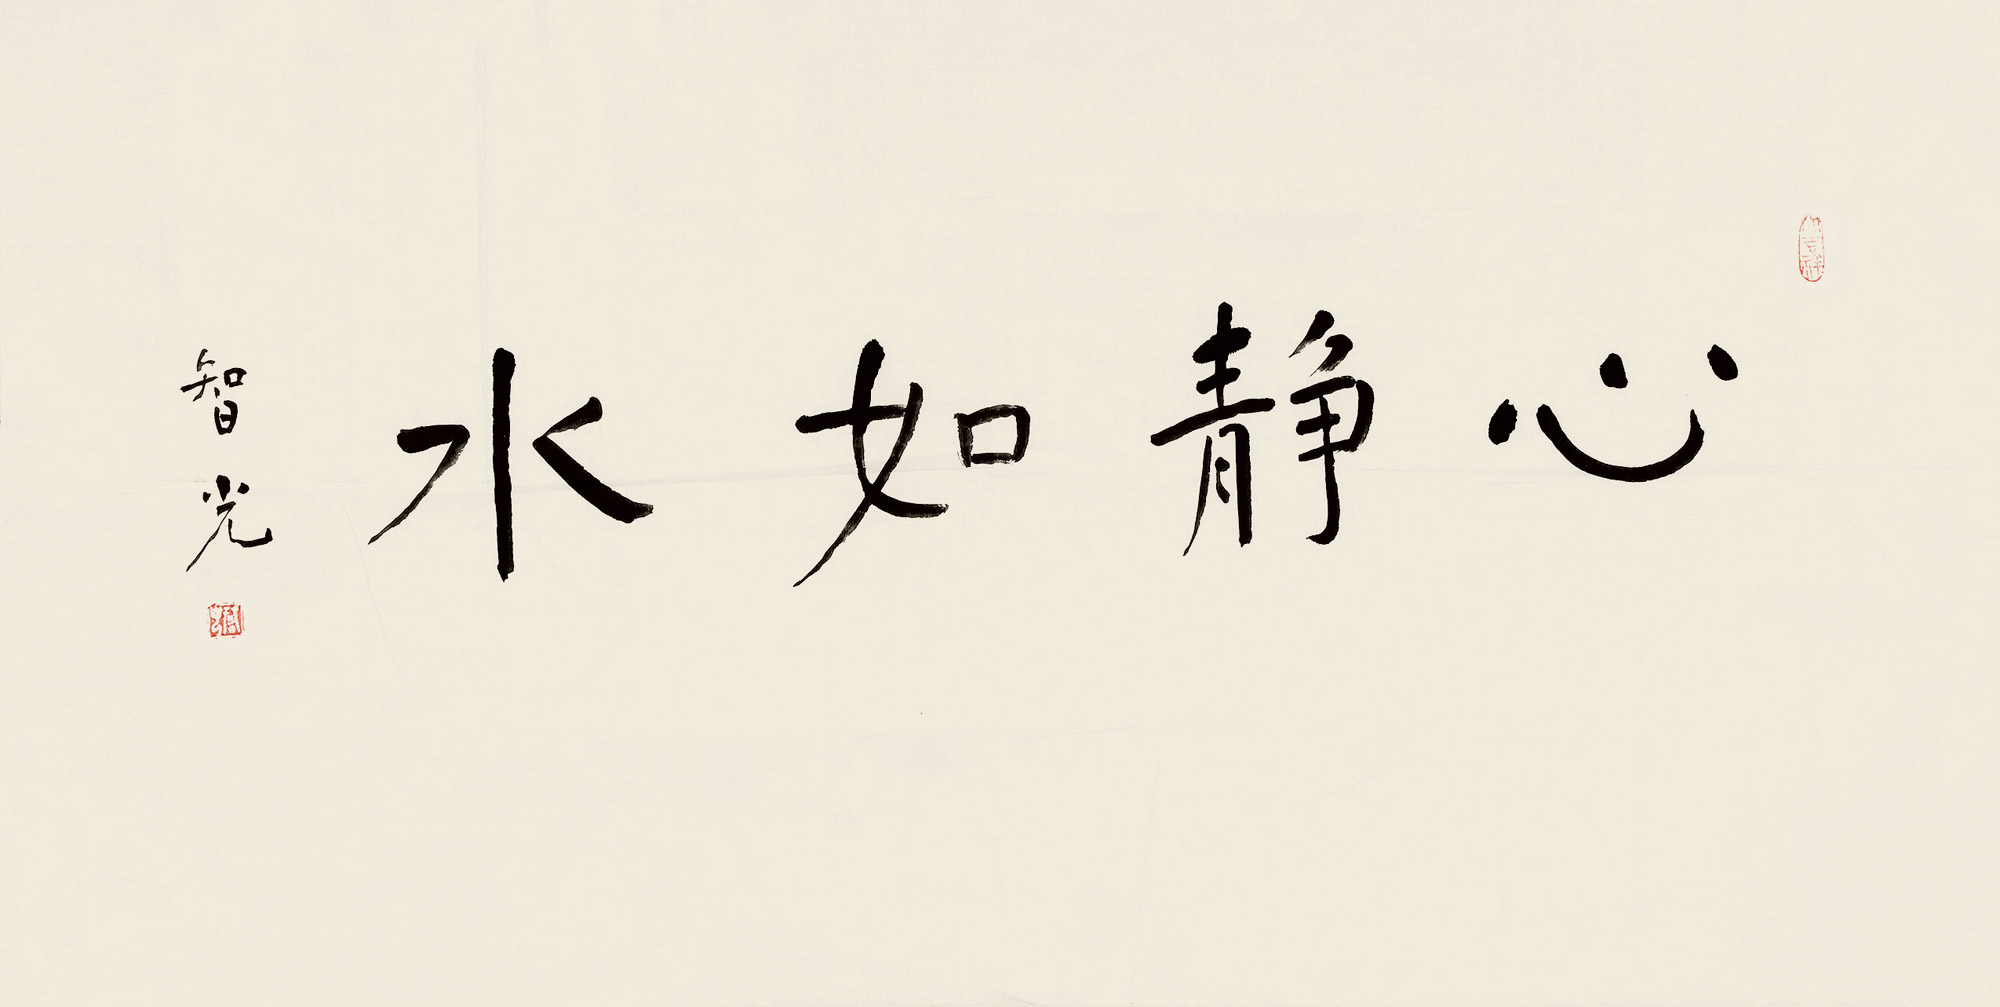 心静如水
智光